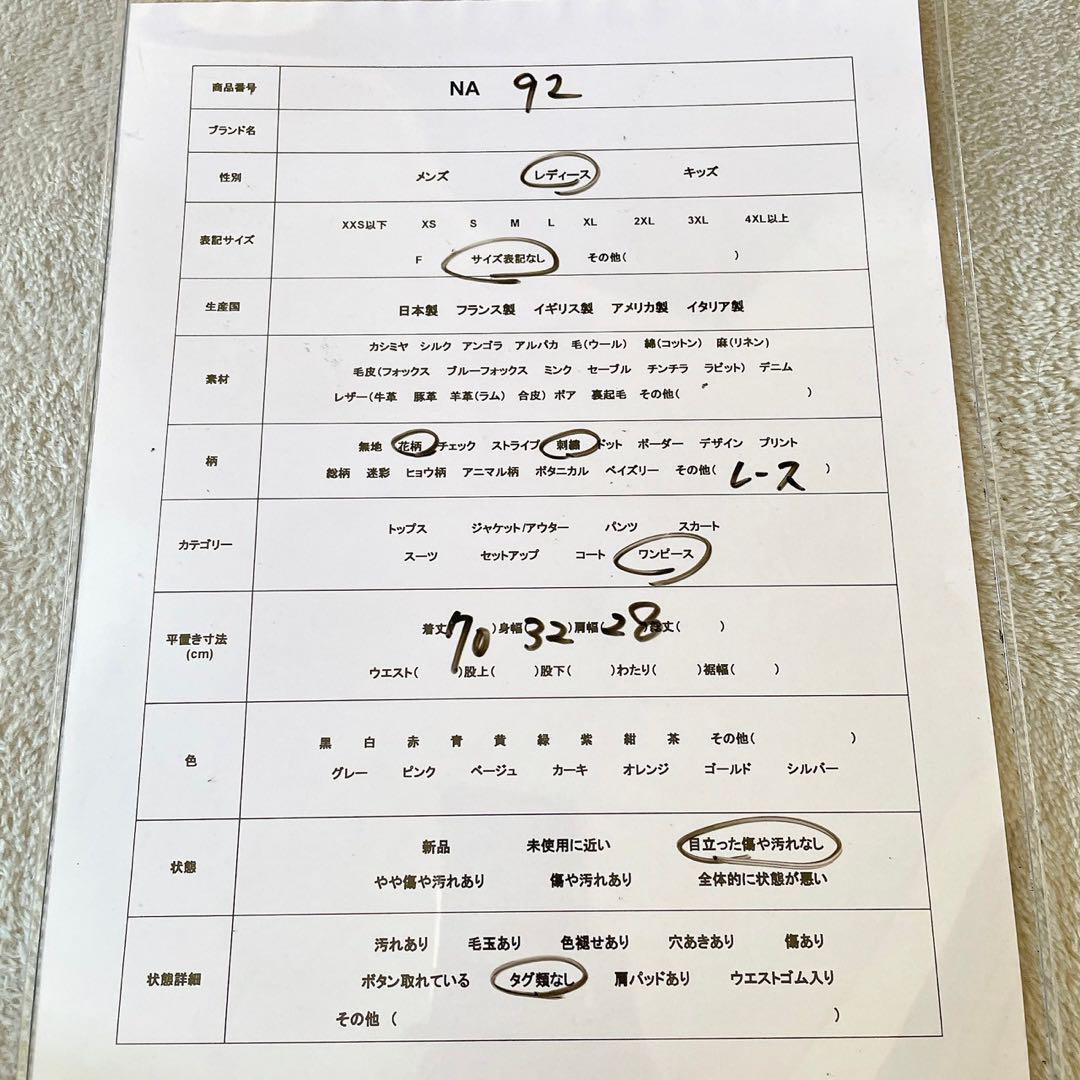 商品番号 NA 92
ブランド名
性別 メンズ レディース キッズ
XXS以下 XS S M L XL 2XL 3XL 4XL以上
表記サイズ
F サイズ表記なし その他( )
生産国 日本製 フランス製 イギリス製 アメリカ製 イタリア製
カシミヤ シルク アンゴラ アルパカ 毛(ウール) 綿(コットン) 麻(リネン)
素材 毛皮(フォックス ブルーフォックス ミンク セーブル チンチラ ラビット) デニム
レザー(牛革 豚革 羊革(ラム) 合皮) ボア 裏起毛 その他( )
無地 花柄 チェック ストライプ 刺繍 ドット ボーダー デザイン プリント
柄
総柄 迷彩 ヒョウ柄 アニマル柄 ボタニカル ペイズリー その他( レース )
トップス ジャケット/アウター パンツ スカート
カテゴリー
スーツ セットアップ コート ワンピース
平置き寸法 着丈( 70 )身幅( 32 )肩幅( 28 )袖丈( )
(cm)
ウエスト( )股上( )股下( )わたり( )裾幅( )
黒 白 赤 青 黄 緑 紫 紺 茶 その他( )
色
グレー ピンク ベージュ カーキ オレンジ ゴールド シルバー
新品 未使用に近い 目立った傷や汚れなし
状態
やや傷や汚れあり 傷や汚れあり 全体的に状態が悪い
汚れあり 毛玉あり 色褪せあり 穴あきあり 傷あり
状態詳細 ボタン取れている タグ類なし 肩パッドあり ウエストゴム入り
その他 ( )